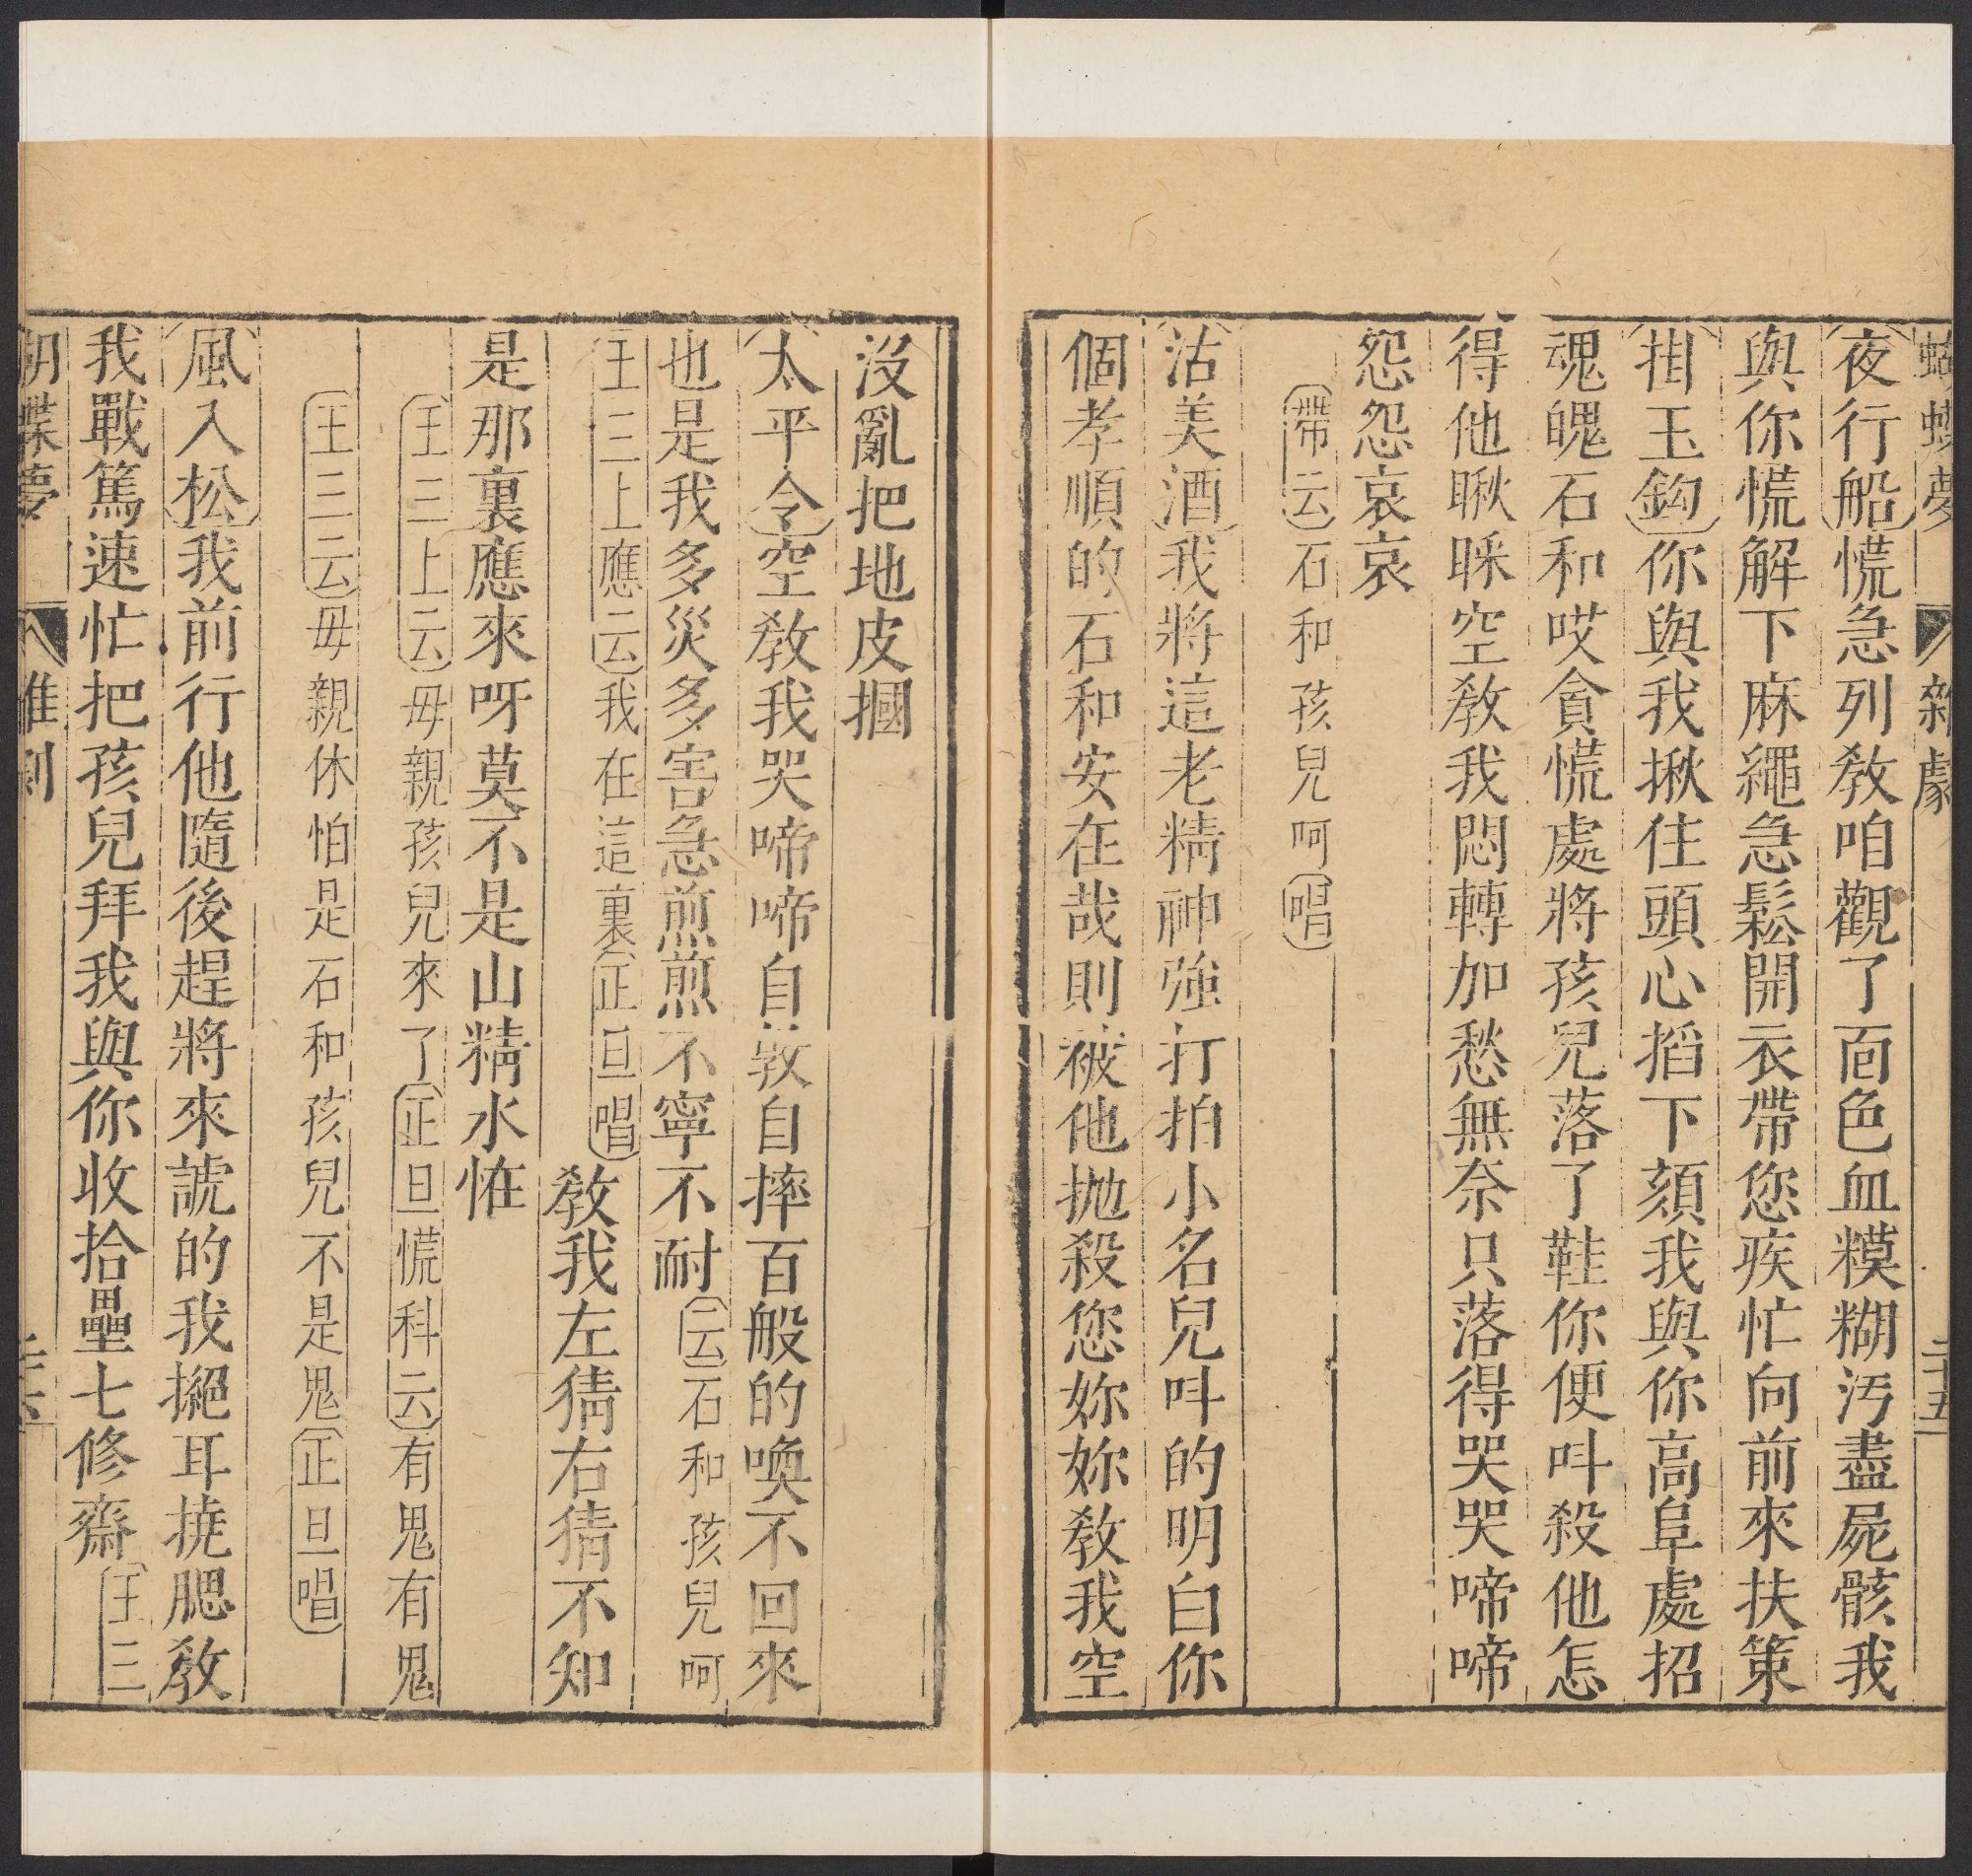 蝴蝶夢 雜劇 二十五
夜行船慌急列教咱觀了面色血糢糊汚盡屍骸我
與你慌解下麻繩急鬆開衣帶您疾忙向前來扶策
掛玉鈎你與我揪住頭心搯下頦我與你高阜處招
魂魄石和哎貪慌處將孩兒落了鞋你便呌殺他怎
得他瞅睬空教我悶轉加愁無奈只落得哭哭啼啼
怨怨哀哀
帶云石和孩兒呵唱
沽美酒我將這老精神強打拍小名兒呌的明白你
個孝順的石和安在哉則被他抛殺您妳妳教我空
沒亂把地皮摑
太平令空教我哭啼啼自敦自摔百般的喚不回來
也是我多災多害急煎煎不寧不耐云石和孩兒呵
王三上應云我在這裏正旦唱教我左猜右猜不知
是那裏應來呀莫不是山精水怪
王三上云毋親孩兒來了正旦慌科云有鬼有鬼
王三云毋親休怕是石和孩兒不是鬼正旦唱
風入松我前行他隨後趕將來諕的我㨪耳撓腮教
我戰篤速忙把孩兒拜我與你收拾壘七修齋王三
胡蝶夢 雜劇 二十六